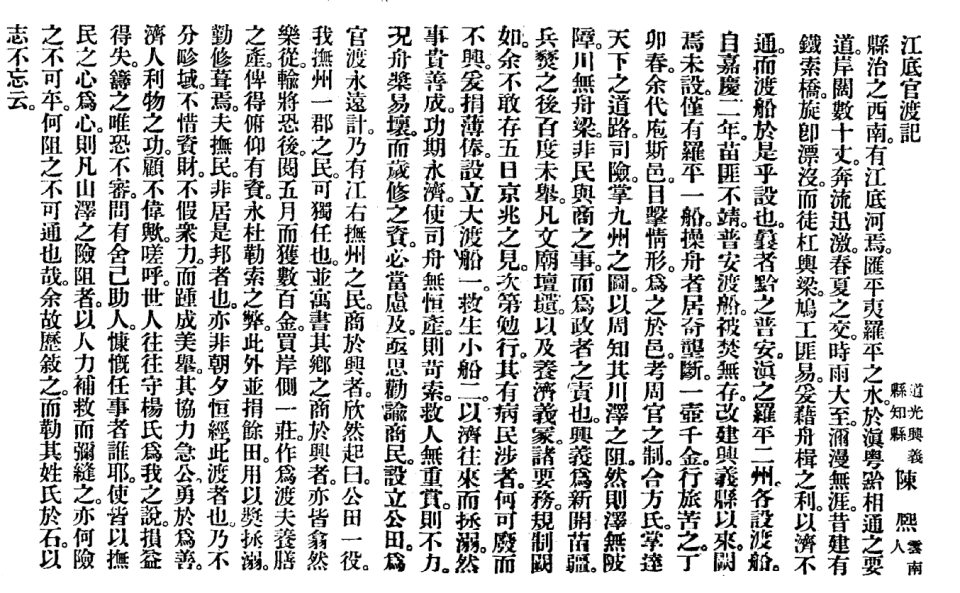 江底官渡記
道光興義
縣知縣
陳熙
雲南
人
縣治之西南。有江底河焉。匯平夷羅平之水。於滇粵黔相通之要
道。岸闊數十丈。奔流迅激。春夏之交。時雨大至。瀰漫無涯。昔建有
鐵索橋。旋卽漂沒。而徒杠輿梁。鳩工匪易。爰藉舟楫之利。以濟不
通。而渡船於是乎設也。曩者黔之普安。滇之羅平二州。各設渡船。
自嘉慶二年。苗匪不靖。普安渡船。被焚無存。改建興義縣以來。闕
焉未設。僅有羅平一船。操舟者居奇壟斷。一壺千金。行旅苦之。丁
卯春。余代庖斯邑。目擊情形。爲之於邑。考周官之制。合方氏。掌達
天下之道路。司險掌九州之圖。以周知其川澤之阻。然則澤無陂
障。川無舟梁。非民與商之事。而爲政者之責也。興義爲新開苗疆。
兵燹之後。百度未舉。凡文廟壇壝。以及養濟義冢諸要務。規制闕
如。余不敢存五日京兆之見。次第勉行。其有病民涉者。何可廢而
不興。爰捐薄俸。設立大渡船一。救生小船二。以濟往來而拯溺。然
事貴善成。功期永濟。使司舟無恒產。則苛索。救人無重賞。則不力。
况舟槳易壞。而歲修之資。必當慮及。亟思勸諭商民。設立公田。爲
官渡永遠計。乃有江右撫州之民。商於興者。欣然起曰。公田一役。
我撫州一郡之民。可獨任也。並寓書其鄉之商於興者。亦皆翕然
樂從。輸將恐後。閱五月而獲數百金。買岸側一莊。作爲渡夫養膳
之產。俾得俯仰有資。永杜勒索之弊。此外並捐餘田。用以獎拯溺。
勤修葺焉。夫撫民。非居是邦者也。亦非朝夕恒經此渡者也。乃不
分畛域。不惜資財。不假衆力。而踵成美舉。其協力急公。勇於爲善。
濟人利物之功。顧不偉歟。嗟呼。世人往往守楊氏爲我之說。損益
得失。籌之唯恐不審。問有舍己助人。慷慨任事者誰耶。使皆以撫
民之心爲心。則凡山澤之險阻者。以人力補救而彌縫之。亦何險
之不可平。何阻之不可通也哉。余故歷敘之。而勒其姓氏於石。以
志不忘云。